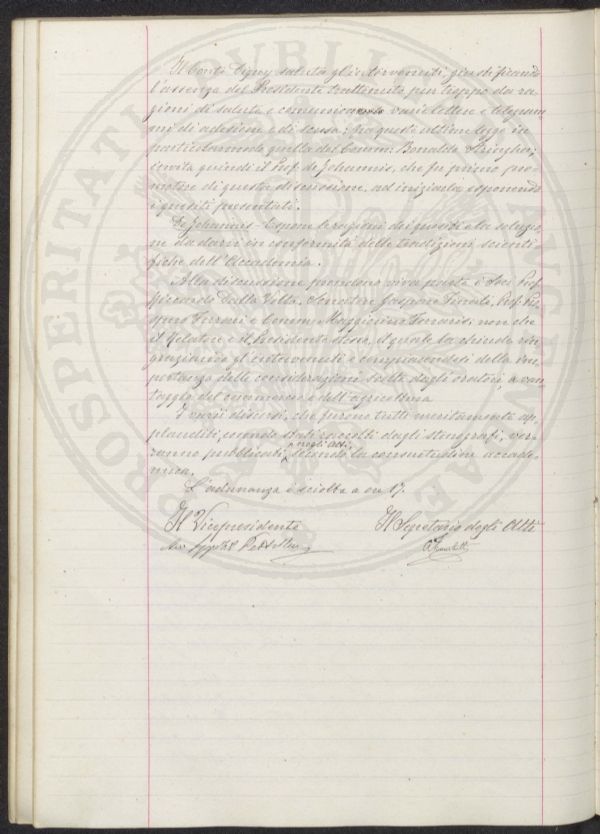 Il Conte Digny saluta gl'intervenuti, giustificando
l'assenza del Presidente trattenuto pur troppo da ra-
gioni di salute e comunicando varie lettere e telegram-
mi di adesione e di scusa; fra queste ultime legge in
particolar modo quella del Comm. Bonaldo Stringher;
invita quindi il Prof. de Johannis, che fu primo pro-
motore di questa discussione, ad iniziarla esponendo
i quesiti presentati.
De Johannis - Espone le ragioni dei quesiti e la soluzio-
ne da darsi in conformità delle tradizioni scienti-
fiche dell'Accademia.
Alla discussione prendono viva parte i Soci Prof.
Riccardo Dalla Volta, Senatore Gaspare Finali, Prof.
Ferrari e Comm. Maggiorino Ferraris, non che
il Relatore e il Presidente stesso, il quale la chiude rin-
graziando gl'intervenuti e compiacendosi della im-
portanza delle considerazioni svolte dagli oratori, a van-
taggio del commercio e dell'agricoltura.
I varii discorsi, che furono tutti meritamente ap-
plauditi, essendo stati raccolti dagli stenografi, ver-
ranno pubblicati, negli Atti, secondo la consuetudine accade-
mica.
L'adunanza è sciolta a ore 17.
Il Vicepresidente
Il Segretario degli Atti
PROSPERITATI PVBLICAE AVGENDAE